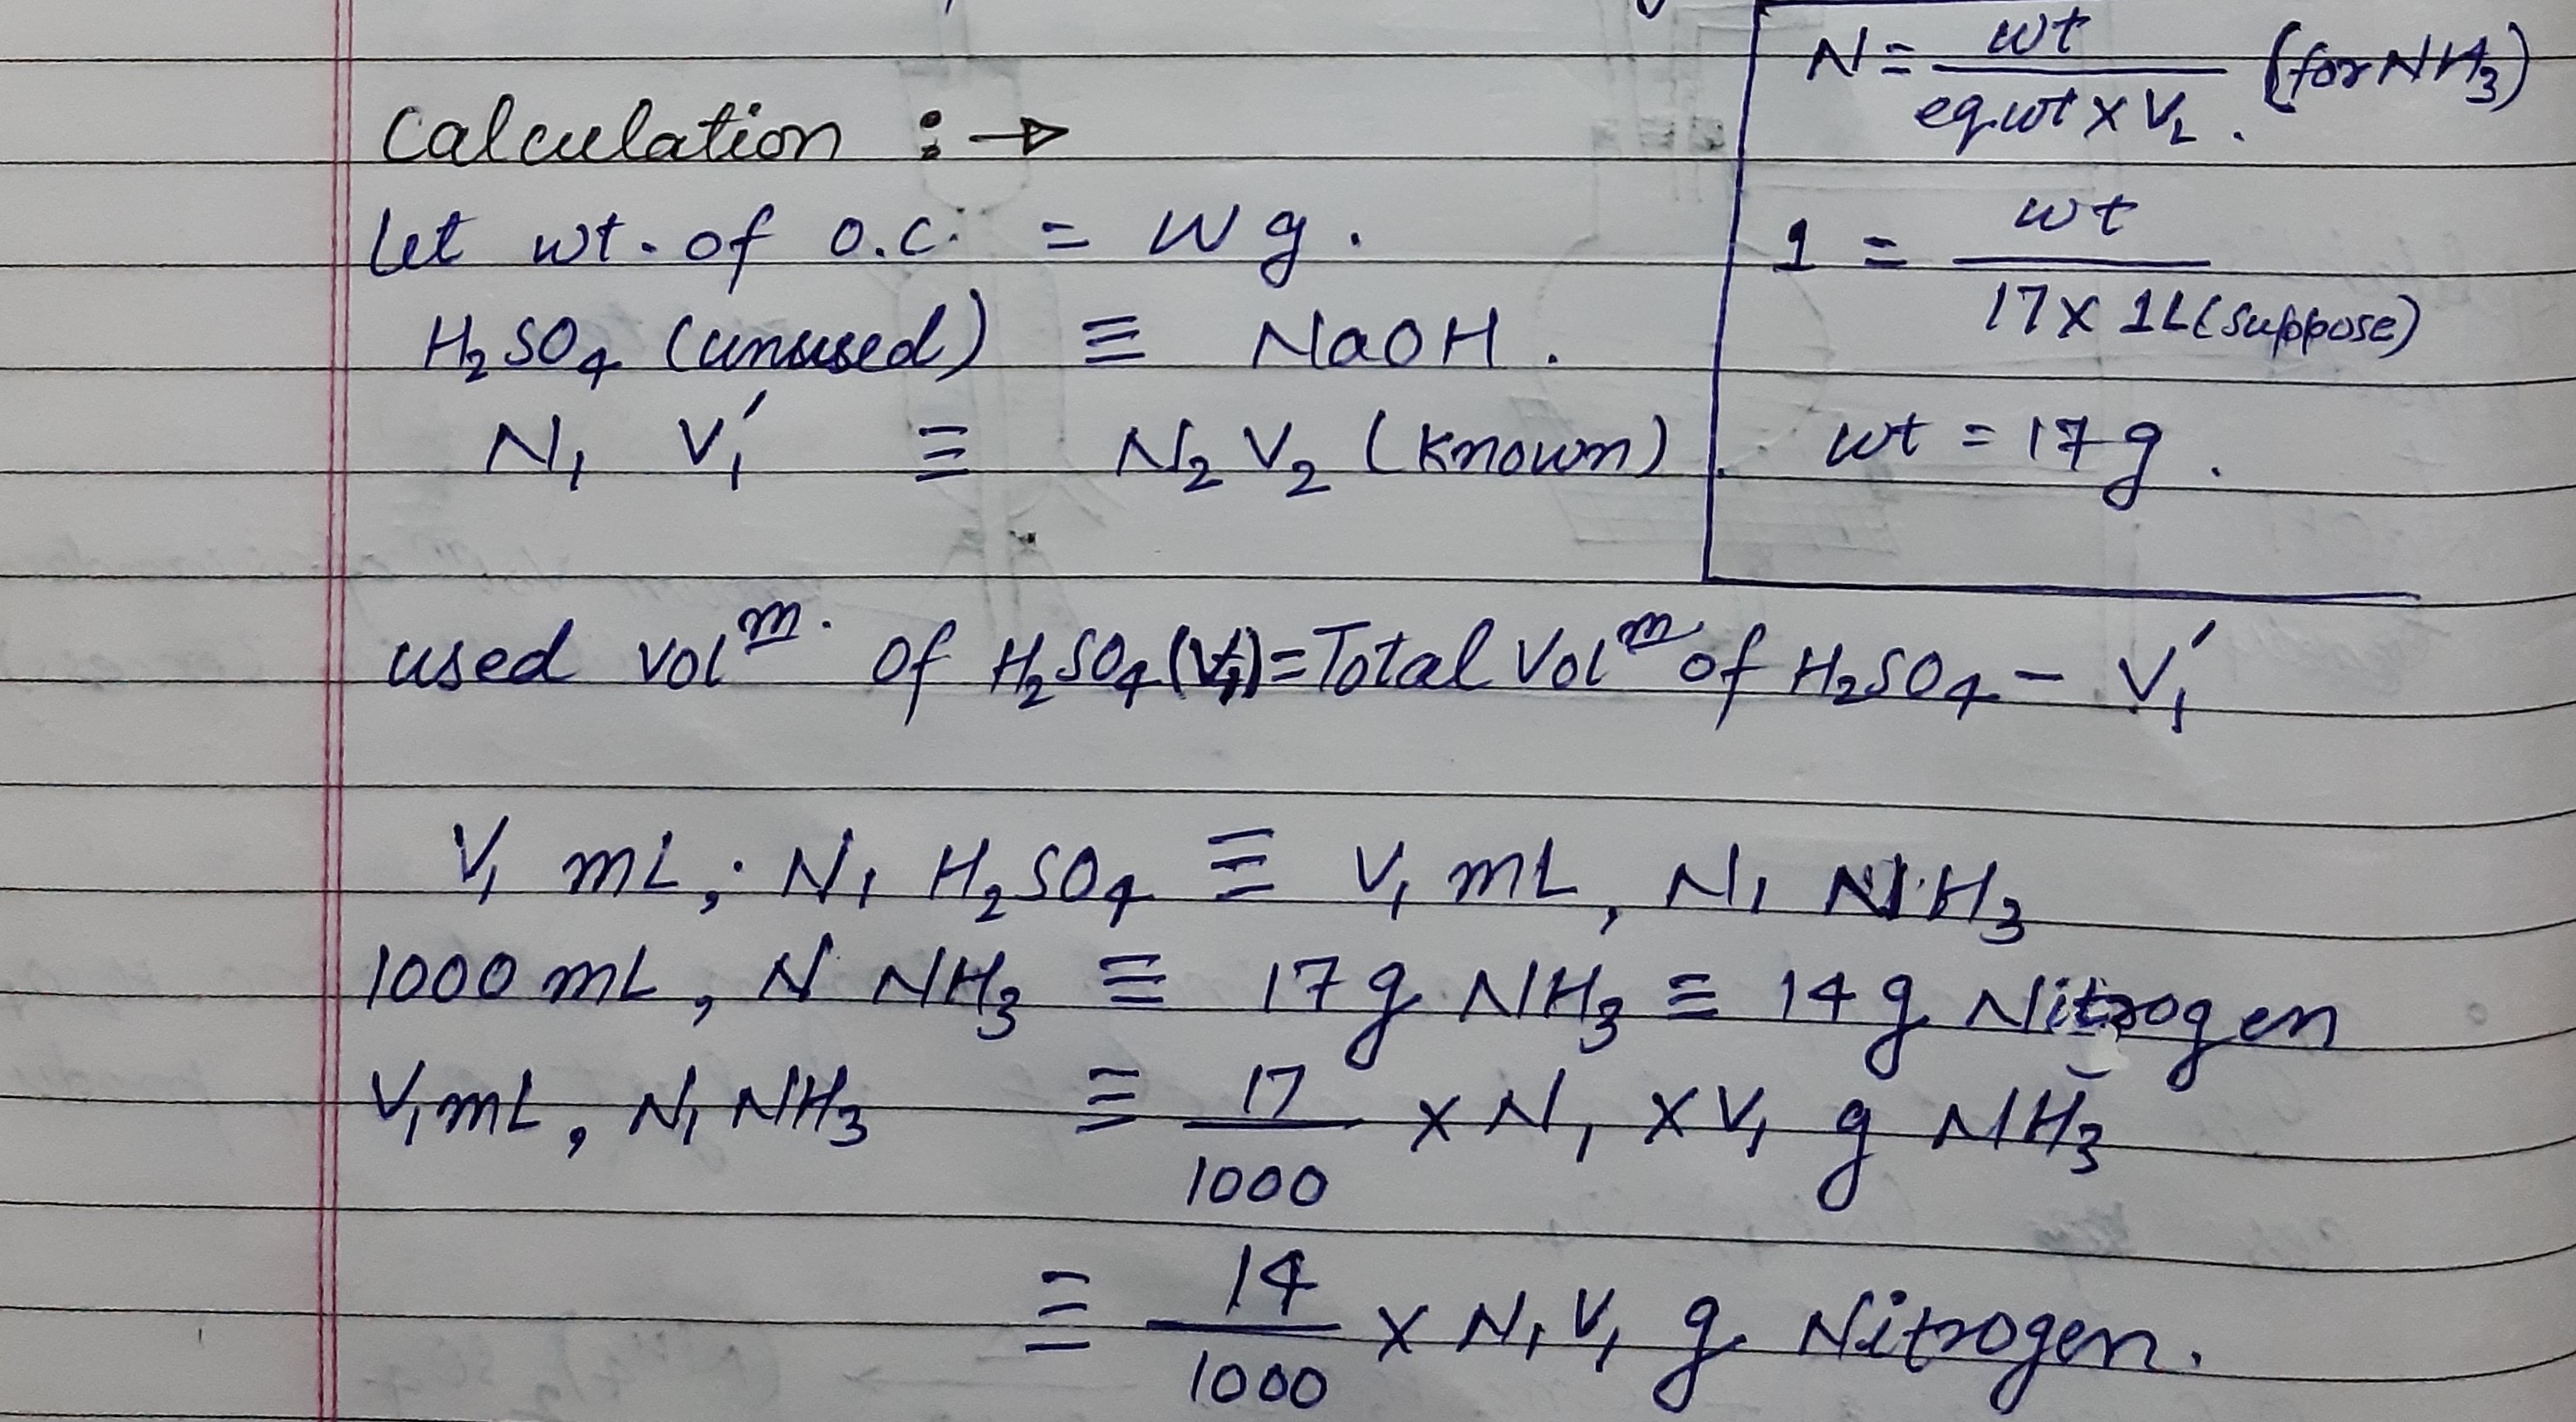 Calculation :→
Let wt. of o.c. = W g.
H₂SO₄ (unused) ≡ NaOH.
N₁ V₁′ ≡ N₂ V₂ (Known)
N = wt / eq wt × V₂. (for NH₃)
1 = wt / 17 × 1L (suppose)
wt = 17 g.
used volᵐ. of H₂SO₄ (V₁) = Total Volᵐ of H₂SO₄ − V₁′
V₁ mL, N₁ H₂SO₄ ≡ V₁ mL, N₁ NH₃
1000 mL, N NH₃ ≡ 17 g NH₃ ≡ 14 g Nitrogen
V₁ mL, N₁ NH₃ ≡ 17 / 1000 × N₁ × V₁ g NH₃
≡ 14 / 1000 × N₁ V₁ g Nitrogen.